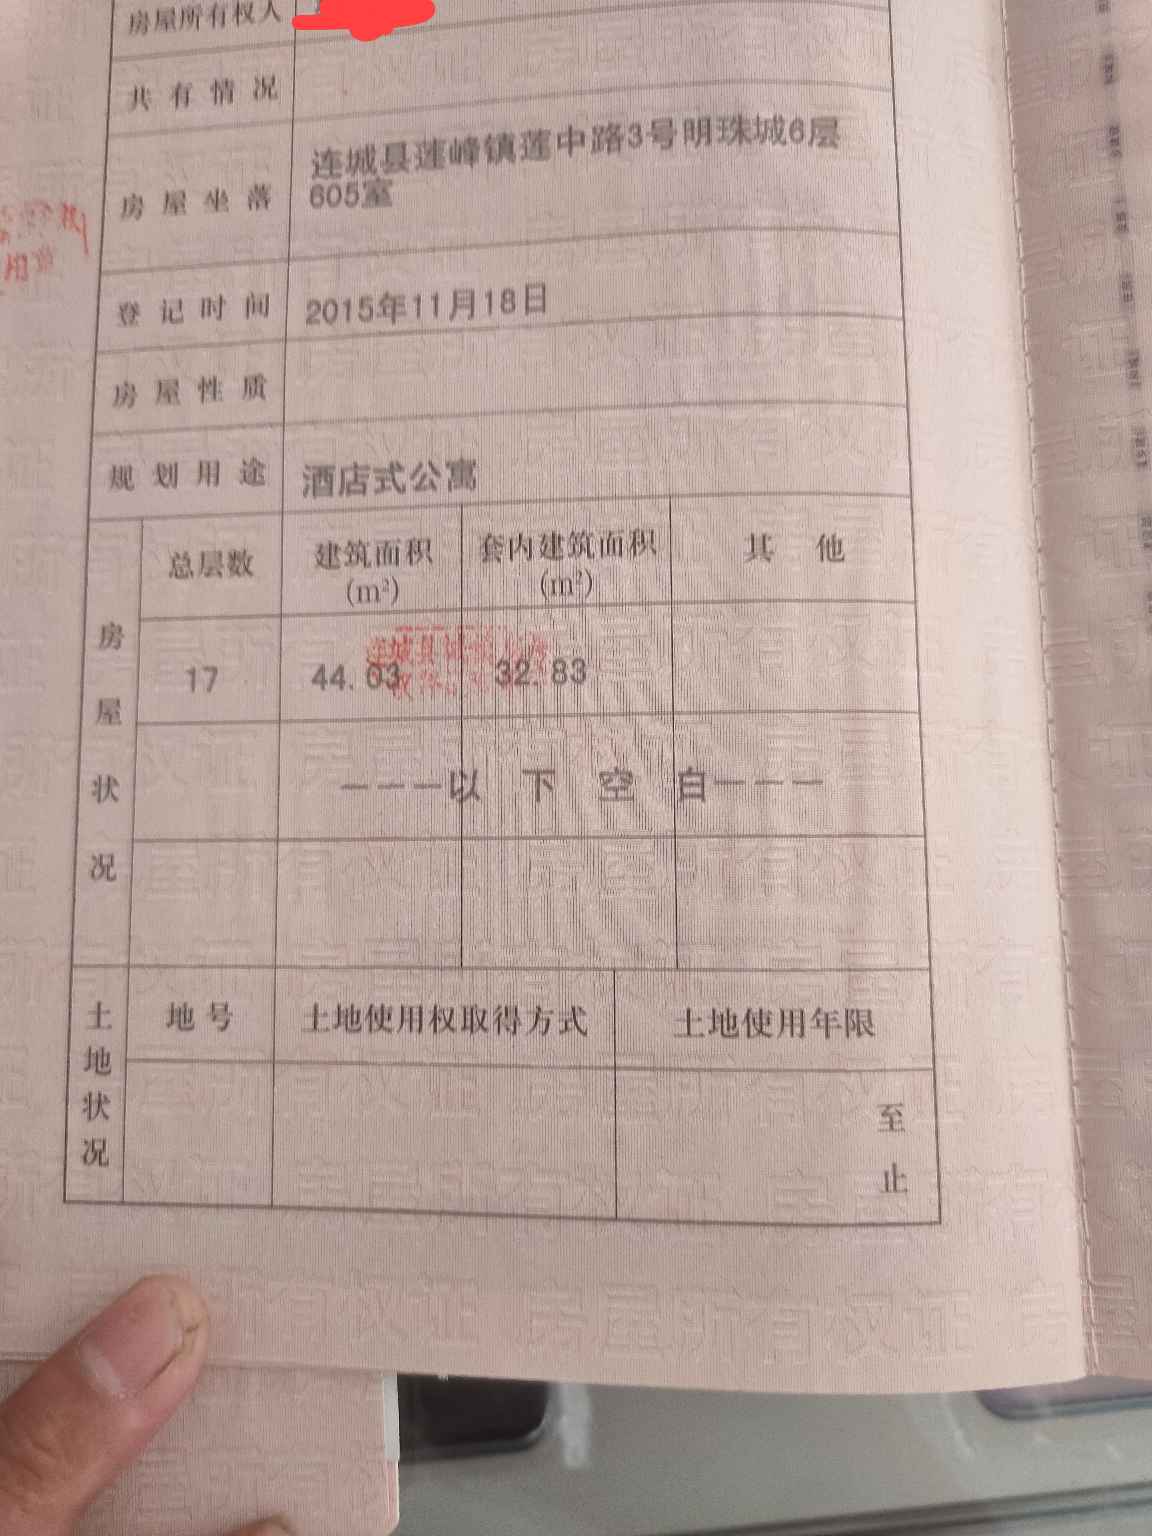 房屋所有权人
共有情况
房屋坐落
连城县莲峰镇莲中路3号明珠城6层
605室
登记时间
2015年11月18日
房屋性质
规划用途
酒店式公寓
房屋状况
总层数
建筑面积
(m²)
套内建筑面积
(m²)
其他
17
44.03
32.83
---以下空白---
土地状况
地号
土地使用权取得方式
土地使用年限
至
止